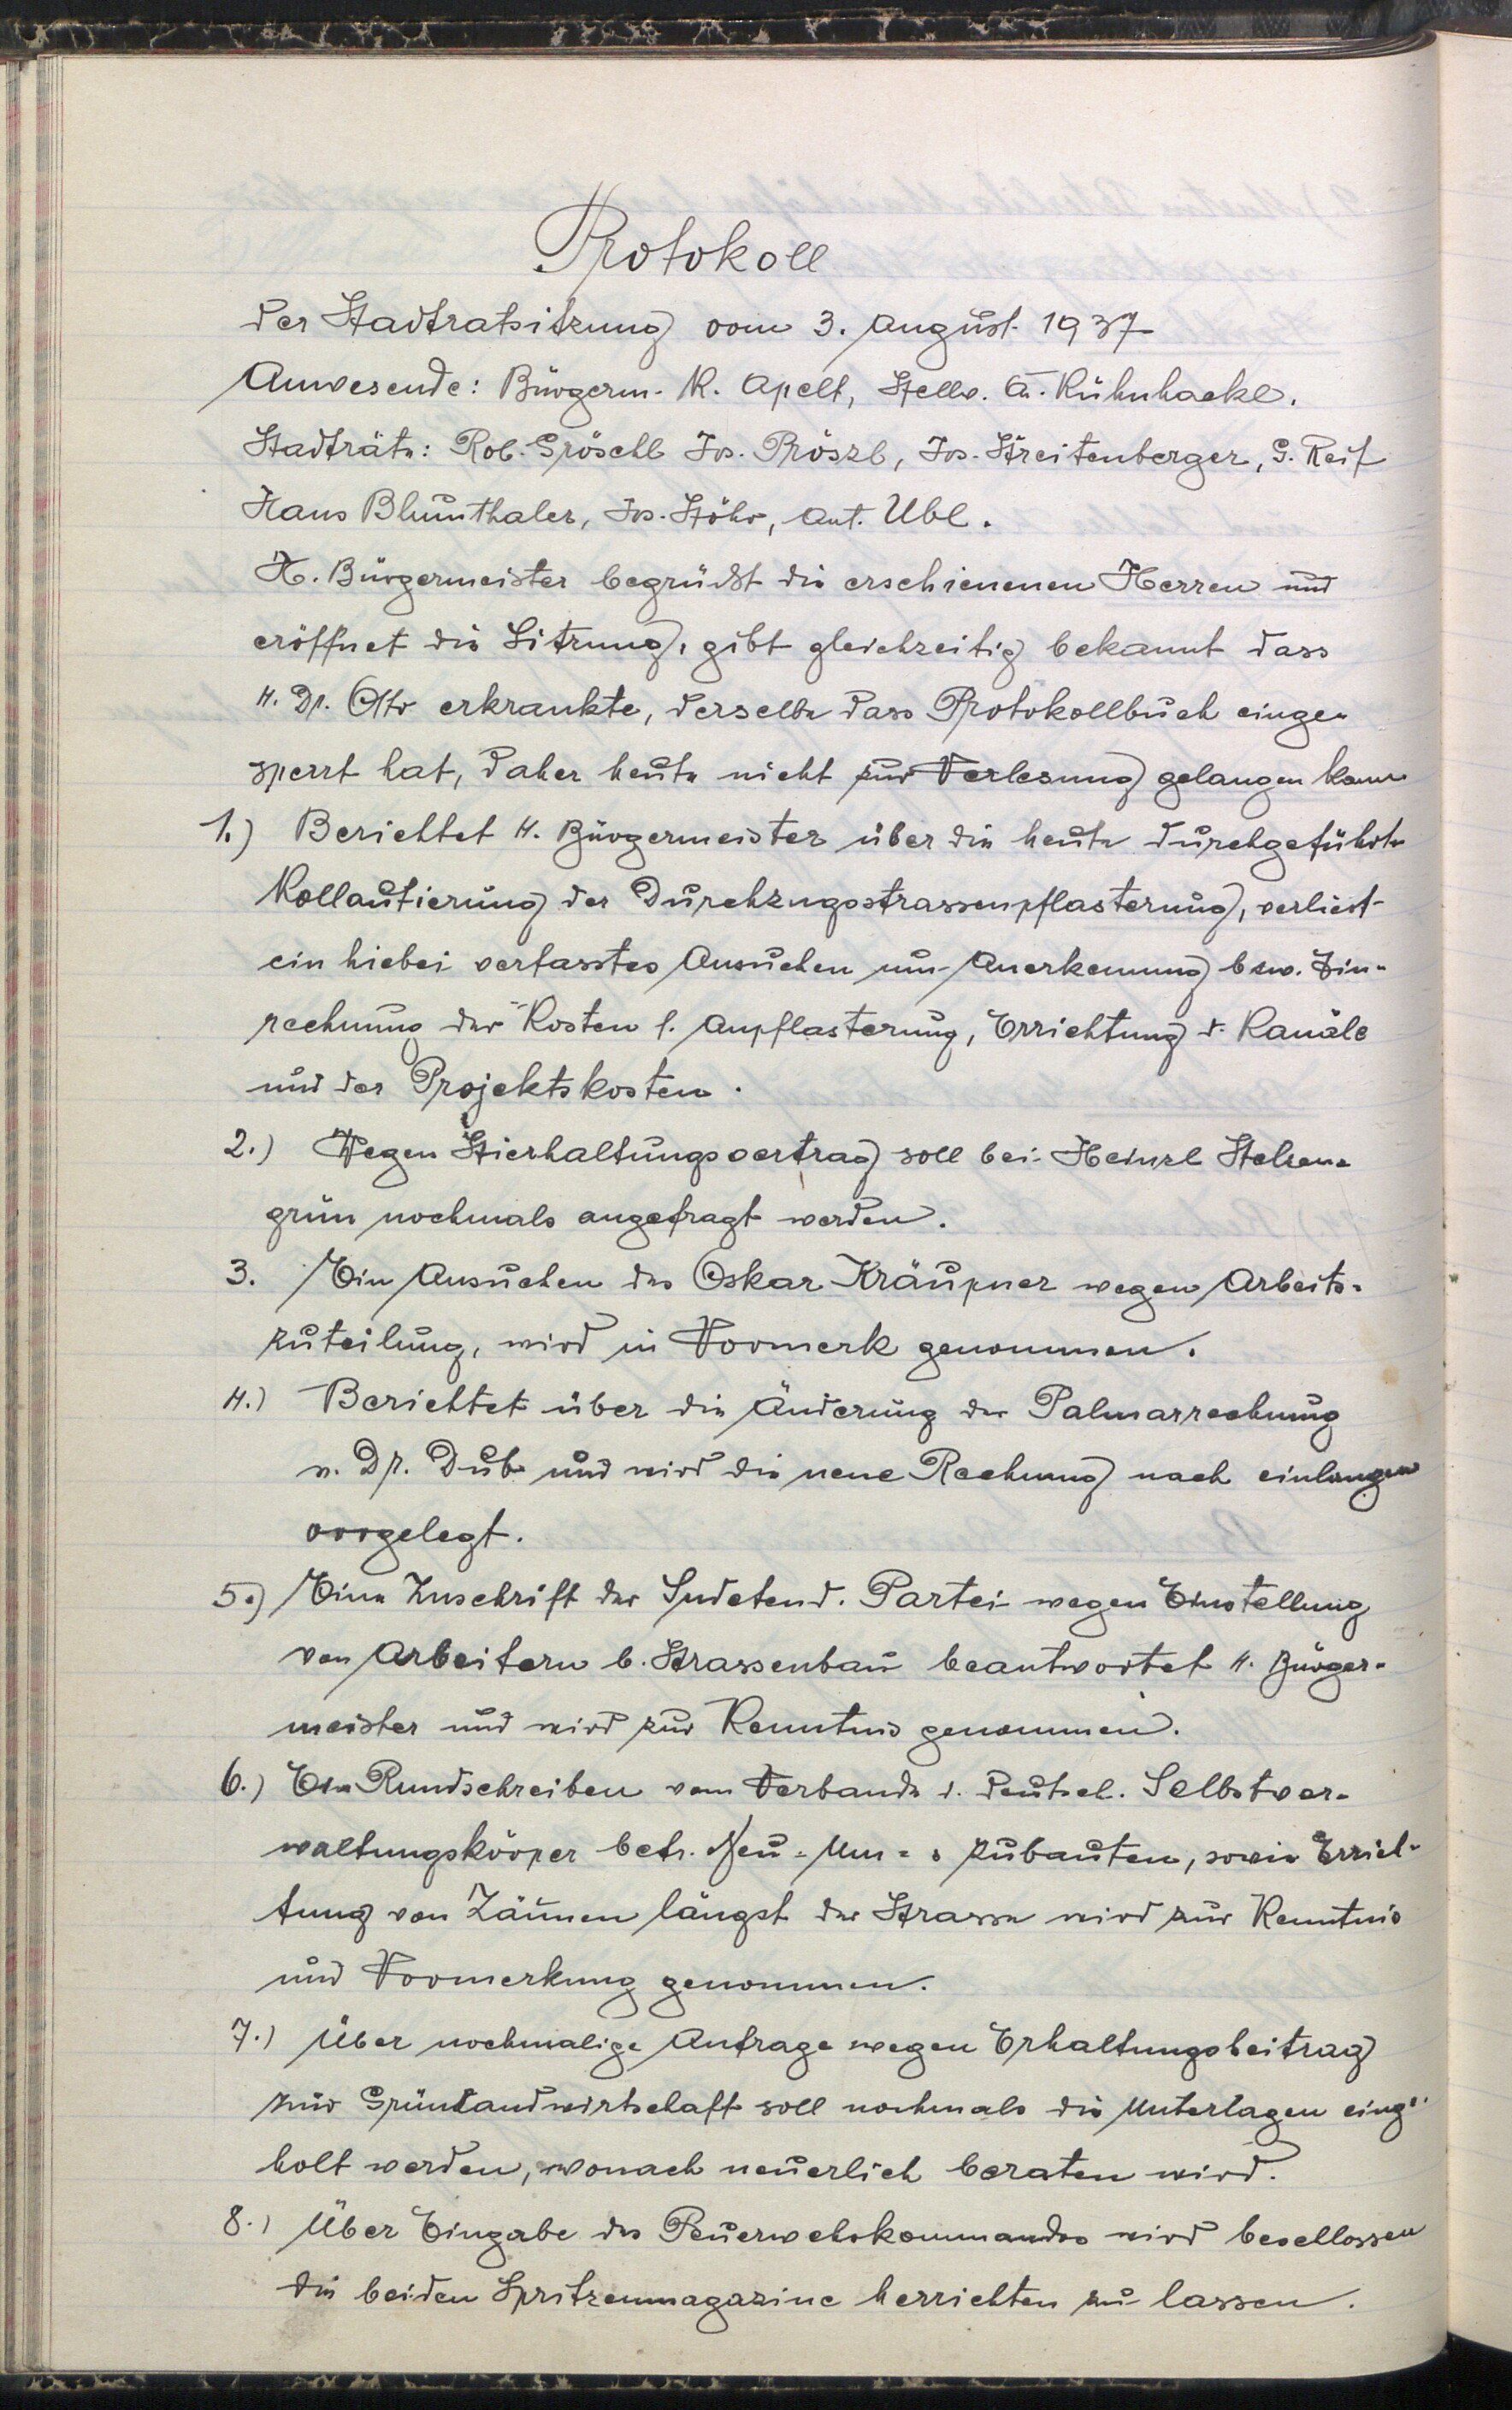 Protokoll
der Stadtratsitzung vom 3. August 1937
Anwesende: Bürgerm. K. Apelt, Stellv. A. Kühnhackl.
Stadträte: Rob. Gröschl Jos. Pröszl, Jos. Streitenberger, G. Reif
Hans Blumthaler, Jos. Stöhr, Ant. Ubl.
H. Bürgermeister begrüßt die erschienenen Herren und
eröffnet die Sitzung, gibt gleichzeitig bekannt dass
H. Dr. Otto erkrankte, derselbe dass Protokollbuch einge-
sperrt hat, daher heute nicht zur Verlesung gelangen kann
1.) Berichtet H. Bürgermeister über die heute durchgeführte
Kollautierung der Durchzugsstrassenpflasterung, verliest
ein hiebei verfasstes Ansuchen um Anerkennung bzw. Ein-
rechnung der Kosten f. Anpflasterung, Errichtung d. Kanäle
und der Projektskosten.
2.) Wegen Stierhaltungsvertrag soll bei Heinzl Stelzen-
grün nochmals angefragt werden.
3. Ein Ansuchen des Oskar Kräupner wegen Arbeits-
zuteilung, wird in Vormerk genommen.
4.) Berichtet über die Änderung der Palmarrechnung
v. Dr. Dub und wird die neue Rechnung nach einlangen
vorgelegt.
5.) Eine Zuschrift der Sudetend. Partei wegen Einstellung
von Arbeitern b. Strassenbau beantwortet H. Bürger-
meister und wird zur Kenntnis genommen.
6.) Ein Rundschreiben vom Verbande d. deutsch. Selbstver-
waltungskörper betr. Neu- Um- Zubauten, sowie Errich-
tung von Zäunen längst der Strasse wird zur Kenntnis
und Vormerkung genommen.
7.) Über nochmalige Anfrage wegen Erhaltungsbeitrag
zur Grünlandwirtschaft soll nochmals die Unterlagen einge-
holt werden, wonach neuerlich beraten wird.
8.) Über Eingabe des Feuerwehrkommandos wird beschlossen
die beiden Spritzenmagazine herrichten zu lassen.